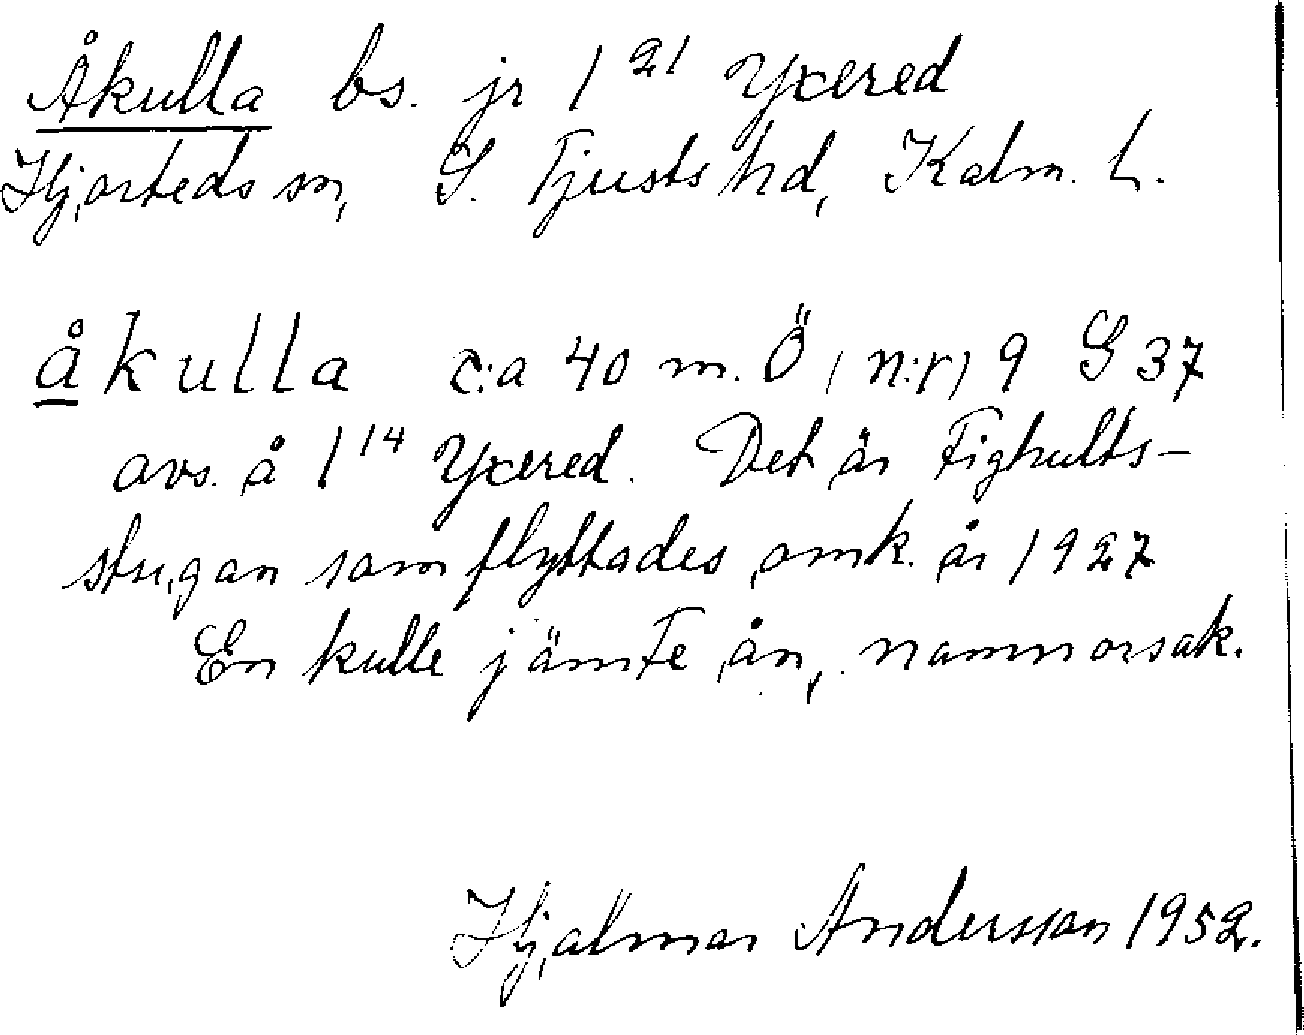 Åkulla bs. jr 1²¹ Yxered
Hjorteds sn, S. Tjusts hd, Kalm. L.
åkulla c:a 40 m. Ö (n:r) 9 S 37
avs. å 1¹⁴ Yxered. Det är Fighults-
stugan som flyttades omk. år 1927
En kulle jämte ån, namnorsak.
Hjalmar Andersson 1952.